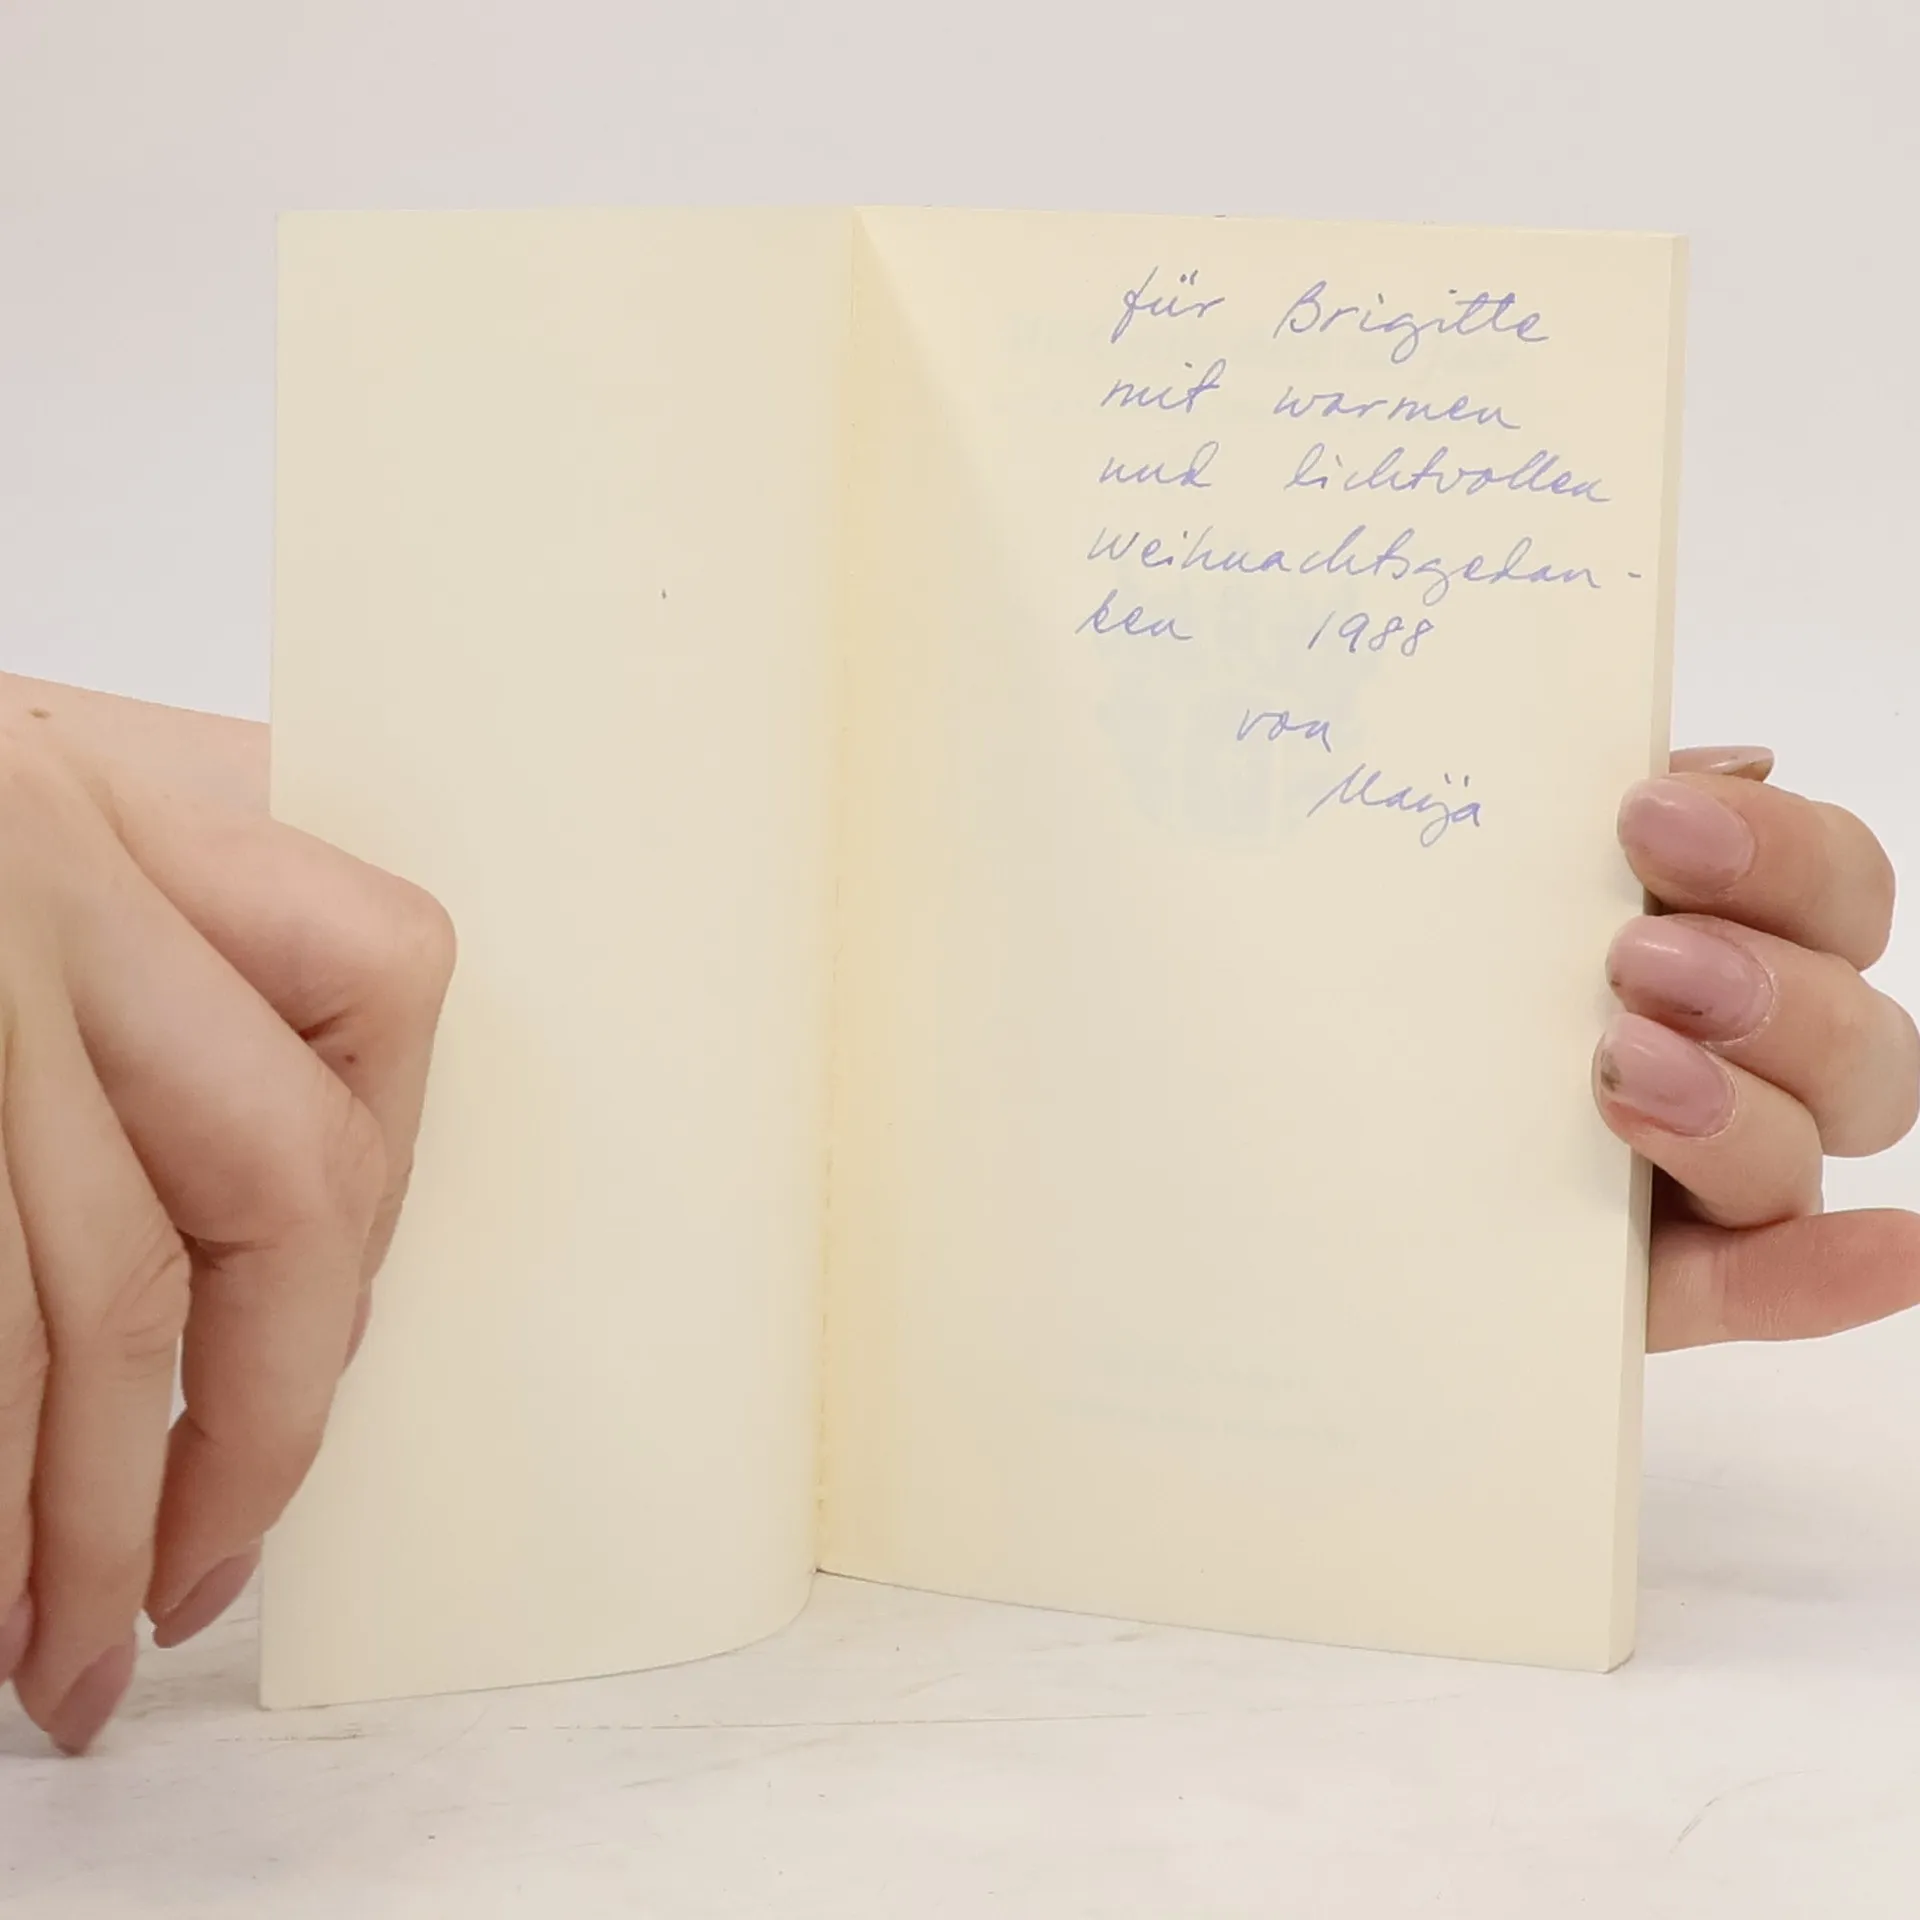 für Brigitte
mit warmen
und lichtvollen
Weihnachtsgedan-
ken 1988
von
Maija